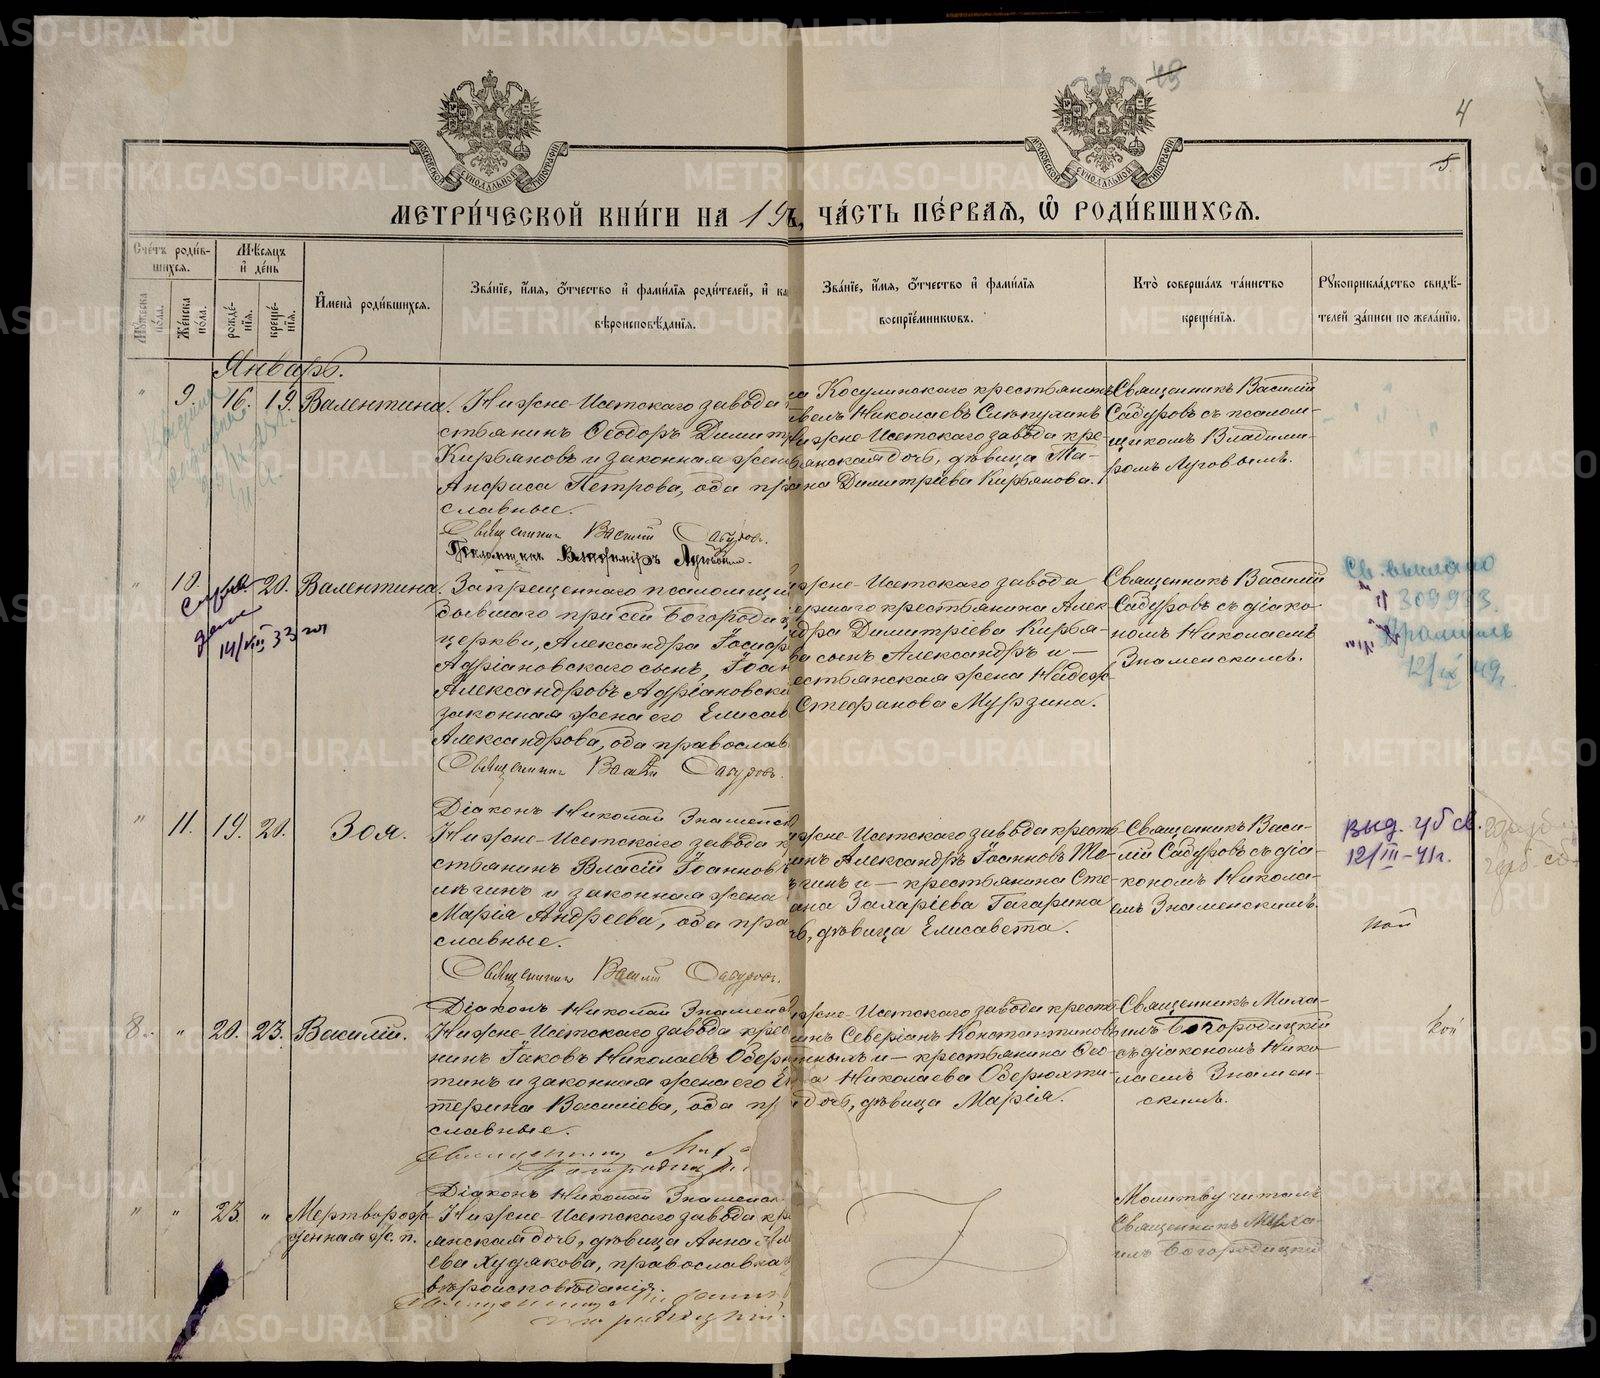 49
4
МОСКОВСКОЙ СѴНОДАЛЬНОЙ ТИПОГРАФИИ
МОСКОВСКОЙ СѴНОДАЛЬНОЙ ТИПОГРАФИИ
МЕТРИ́ЧЕСКОЙ КНИ́ГИ НА 19
Ъ, ЧА́СТЬ ПЕ́РВАЯ, Ѡ҆ РОДИ́ВШИХСЯ.
Сче́тъ роди́в-
шихся.
Мѣ́сяцъ
и҆ де́нь
Му́жеска по́ла.
Же́нска по́ла.
рожде́-
нїя.
креще́-
нїя.
И҆мена̀ роди́вшихся.
Зва́нїе, и҆́мя, ѻ҆́тчество и҆ фами́лїя роди́телей, и҆ ка
вѣроисповѣ́данїя.
Зва́нїе, и҆́мя, ѻ҆́тчество и҆ фами́лїя
воспрїе́мниковъ.
Кто̀ соверша́лъ та́инство
креще́нїя.
Рꙋкоприкла́дство свидѣ́-
телей за́писи по жела́нїю.
Январь.
" 9. 16. 19. Валентина.
Нижне-Исетскаго завода
стьянинъ Ѳеодоръ Димит
Кирьяновъ и законная жен
Анфиса Петрова, оба пра
славные.
Священник Василий Сабуров.
Псаломщик Владимиръ Луговых.
са Косулинскаго крестьянинъ
велъ Николаевъ Слѣпухинъ
Нижне-Исетскаго завода кре-
ьянская дочь, дѣвица Ма-
на Димитріева Кирьянова.
Священникъ Василій
Сабуровъ съ псалом-
щикомъ Владими-
ромъ Луговымъ.
" 10. 20. Валентина.
14/VIII 33 г.
Запрещеннаго псаломщи
бывшаго при сей Богороди
церкви, Александра Іосиф
Адріановскаго сынъ, Іоан
Александровъ Адріановскі
законная жена его Елисав
Александрова, оба православ
Священник Василий Сабуровъ.
жне-Исетскаго завода
ершаго крестьянина Алек
ндра Димитріева Кирья-
ва сынъ Александръ и —
естьянская жена Надеж
Стефанова Мурзина.
Священникъ Василій
Сабуровъ съ діако-
номъ Николаемъ
Знаменскимъ.
Св. выслано
309903
Арамиль
12/IX 49г.
" 11. 19. 20. Зоя.
Діаконъ Николай Знаменс
Нижне-Исетскаго завода к
стьянинъ Власій Іоанновъ
лѣгинъ и законная жена
Марія Андреева, оба пра
славные.
Священник Василий Сабуровъ.
жне-Исетскаго завода кресть
инъ Александръ Іоанновъ Те-
ѣгинъ и — крестьянина Сте-
ана Захаріева Гагарина
чь, дѣвица Елисавета.
Священникъ Васи-
лій Сабуровъ съ діа-
кономъ Никола-
емъ Знаменскимъ.
выд. дуб св.
12/III-41г.
8. " 20. 23. Василій.
Діаконъ Николай Знаменс
Нижне-Исетскаго завода, крес
нинъ Іаковъ Николаевъ Оберю
тинъ и законная жена его Ек
терина Василіева, оба пр
славные.
жне-Исетскаго завода кресть
инъ Северіанъ Константиновъ
и — крестьянина Ѳео-
а Николаева Оберюхти-
дочь, дѣвица Марія.
Священникъ Миха-
илъ Богородицкій
съ діакономъ Нико-
лаемъ Знамен-
скимъ.
" " 23. " Мертворож-
денная ж. п.
Діаконъ Николай Знаменс
Нижне-Исетскаго завода кре
янская дочь, дѣвица Анна
ева Худякова, православна
вѣроисповѣданія.
Молитву читалъ
Священникъ Миха-
илъ Богородицкій
METRIKI.GASO-URAL.RU